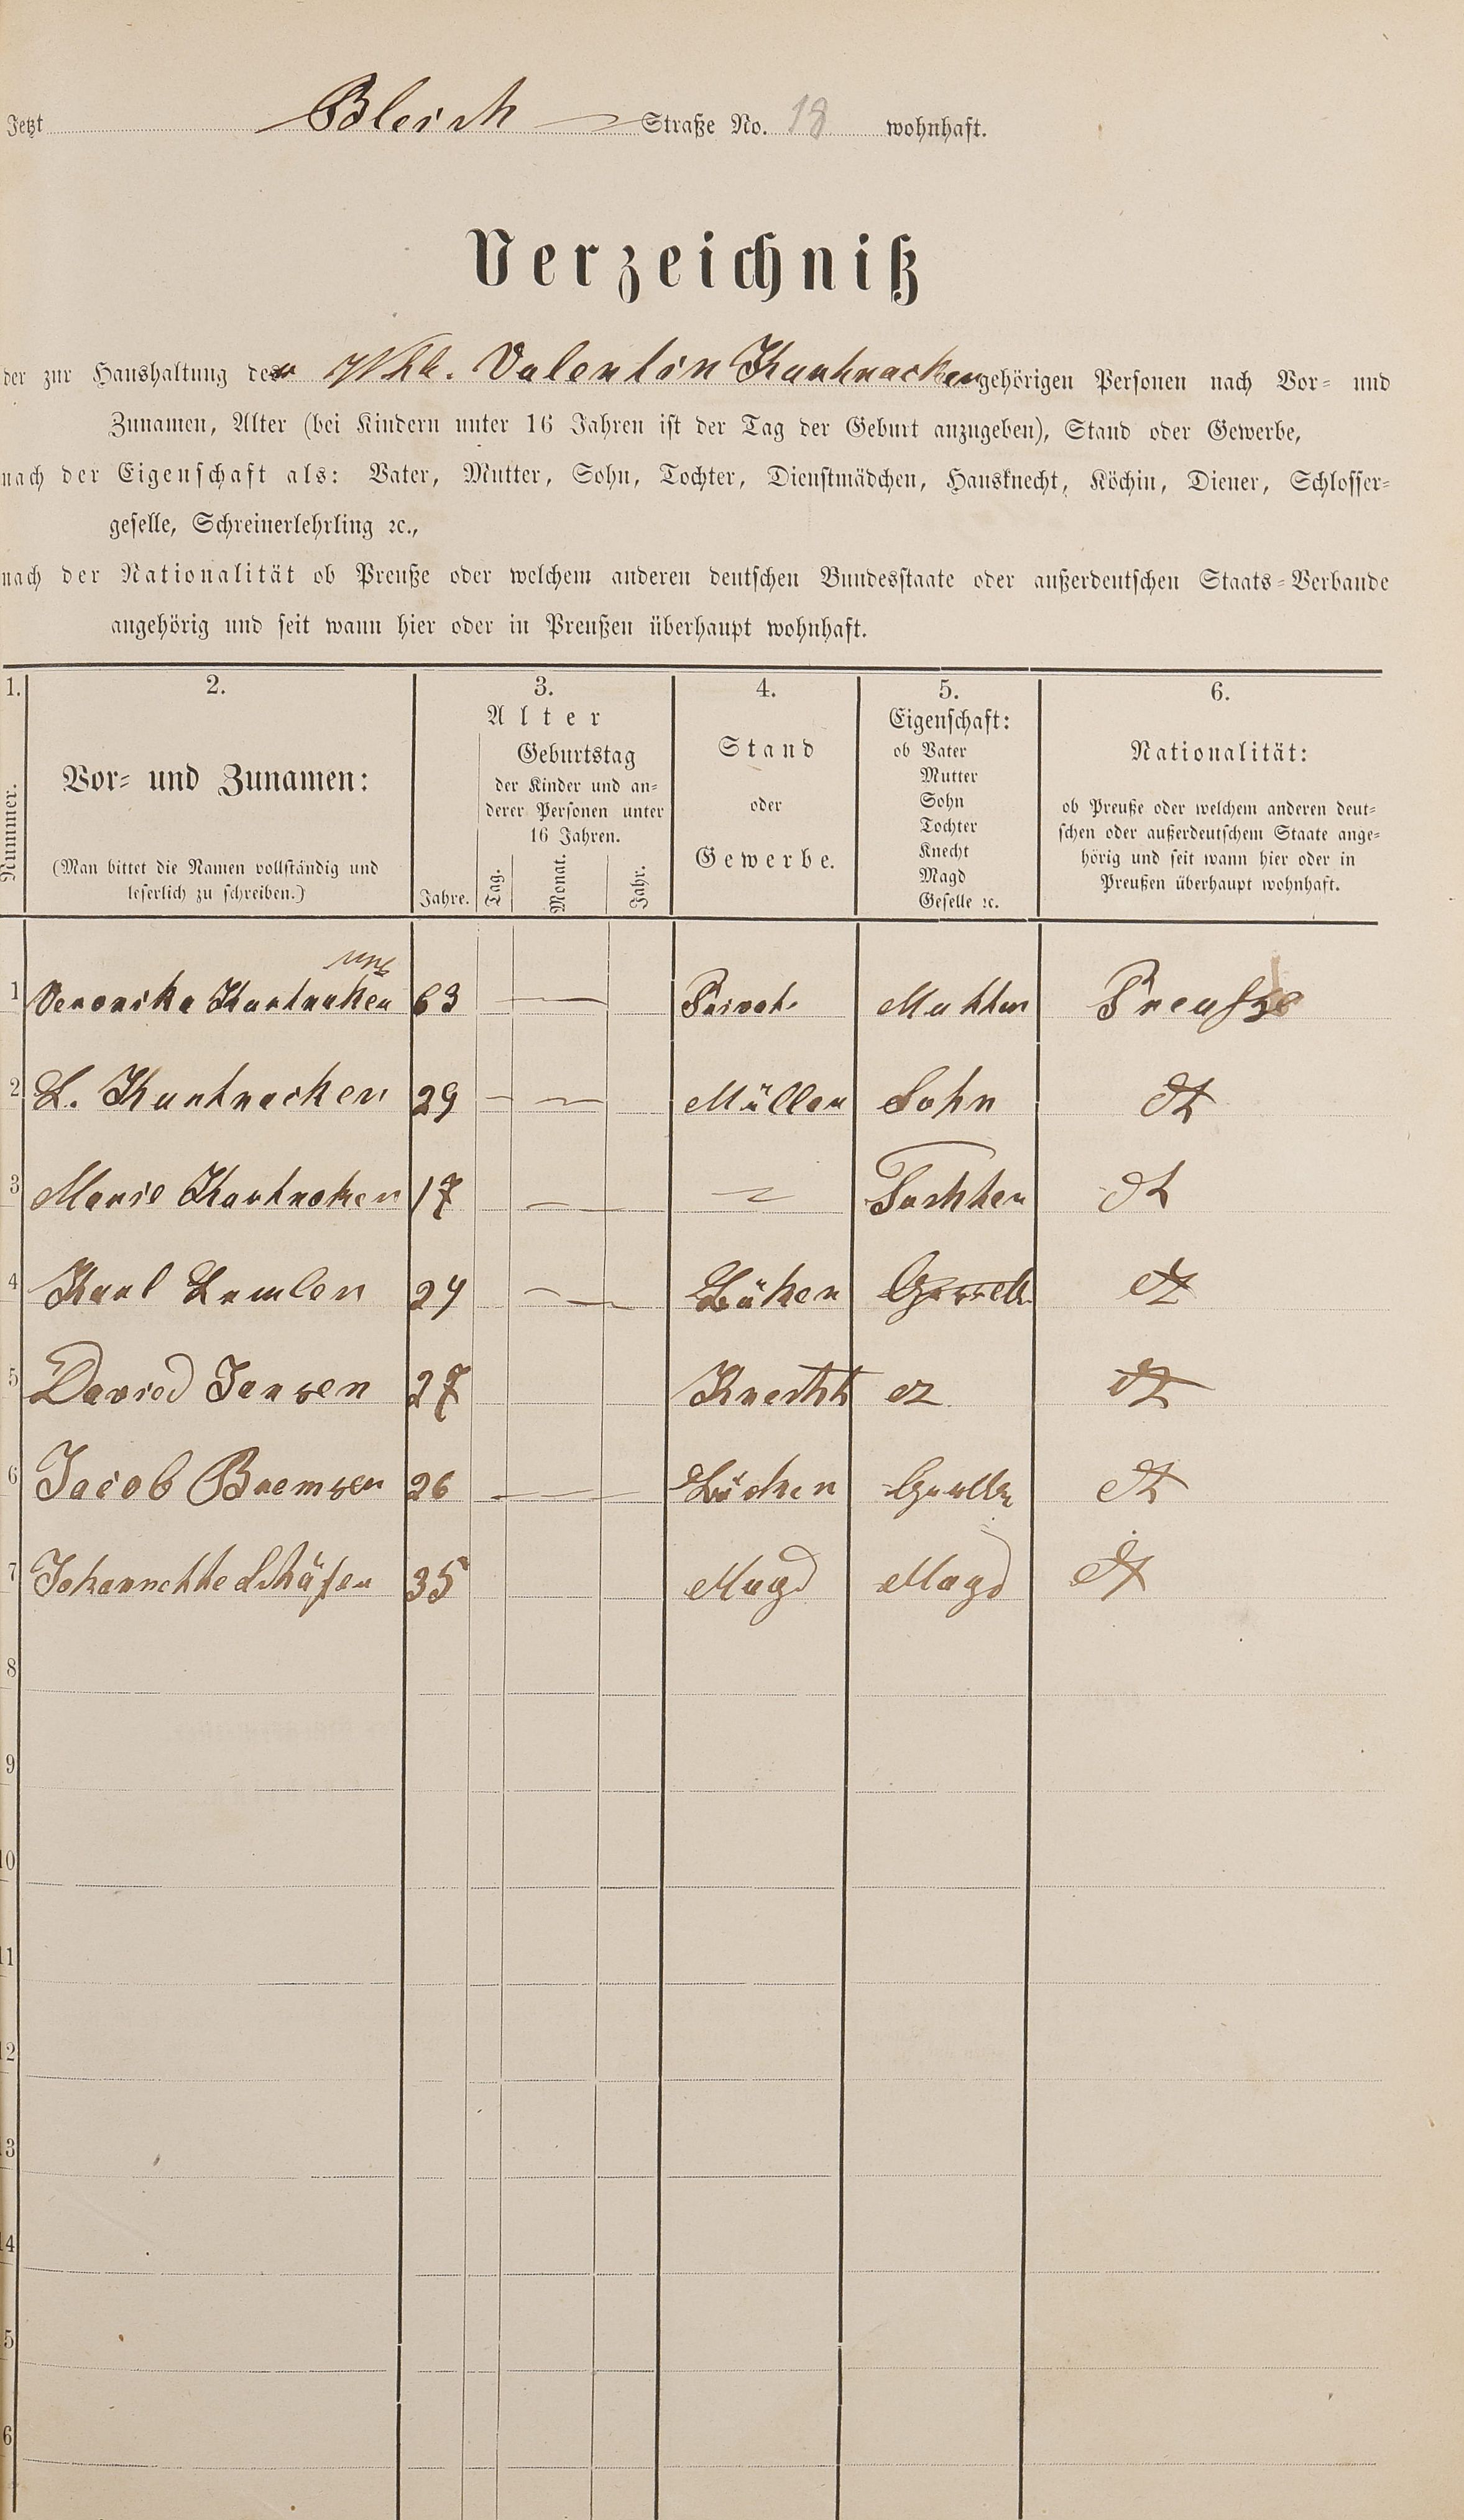 Jetzt Bleich Straße No. 18 wohnhaft.
Verzeichniß
der zur Haushaltung der Wwe. Valentin Kartnacker gehörigen Personen nach Vor- und
Zunamen, Alter (bei Kindern unter 16 Jahren ist der Tag der Geburt anzugeben), Stand oder Gewerbe,
nach der Eigenschaft als: Vater, Mutter, Sohn, Tochter, Dienstmädchen, Hausknecht, Köchin, Diener, Schlosser-
geselle, Schreinerlehrling ꝛc.,
nach der Nationalität ob Preuße oder welchem anderen deutschen Bundesstaate oder außerdeutschen Staats-Verbande
angehörig und seit wann hier oder in Preußen überhaupt wohnhaft.
1. 2. 3. 4. 5. 6.
Nummer.
Vor- und Zunamen:
(Man bittet die Namen vollständig und
leserlich zu schreiben.)
Alter
Jahre.
Geburtstag
der Kinder und an-
derer Personen unter
16 Jahren.
Tag. Monat. Jahr.
Stand
oder
Gewerbe.
Eigenschaft:
ob Vater
Mutter
Sohn
Tochter
Knecht
Magd
Geselle ꝛc.
Nationalität:
ob Preuße oder welchem anderen deut-
schen oder außerdeutschem Staate ange-
hörig und seit wann hier oder in
Preußen überhaupt wohnhaft.
1 Veronika 63 Privat Mutter Preuße
2 L. Kartnacker 29 Müller Sohn dt
3 Marie 17 — Tochter dt
4 Karl 24 Bäker Gesell dt
5 David Jansen 27 Knecht dt
6 Jacob Bremser 26 Bäcker Geselle dt
7 Johannette Schäfer 35 Magd Magd dt
8
9
10
11
12
13
14
5
6